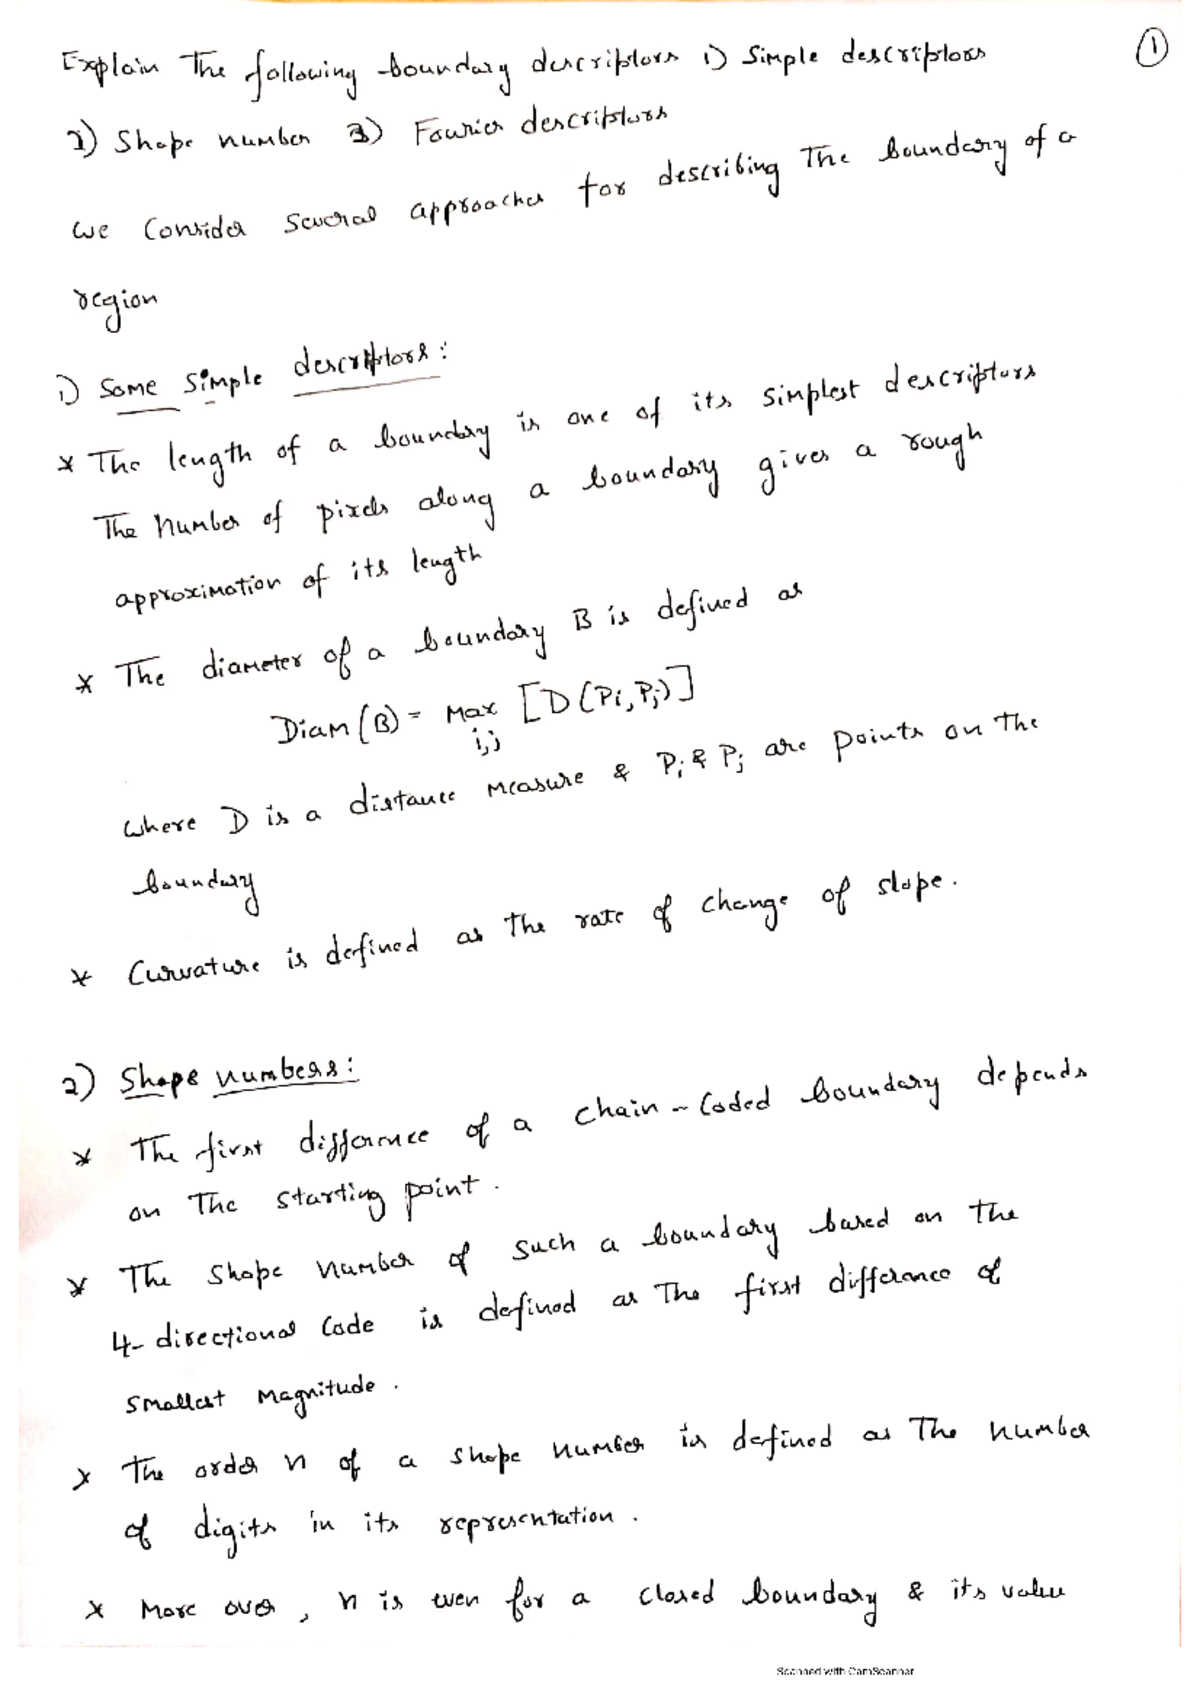 Explain The following boundary descriptors 1) Simple descriptors
1
2) Shape number 3) Fourier descriptors
we Consider Several approaches for describing The boundary of a
region
1) Some Simple descriptors:
* The length of a boundary is one of its simplest descriptors
The Number of pixels along a boundary gives a rough
approximation of its length
* The diameter of a boundary B is defined as
Diam (B) = Max [D (Pi, Pj)]
i,j
where D is a distance measure & Pi & Pj are points on the
boundary
* Curvature is defined as the rate of change of slope.
2) Shape numbers:
* The first difference of a chain - Coded boundary depends
on The starting point.
* The Shape Number of such a boundary based on the
4- directional Code is defined as The first difference of
Smallest Magnitude.
* The order n of a shape number is defined as The number
of digits in its representation.
* More over, n is even for a closed boundary & its value
Scanned with CamScanner